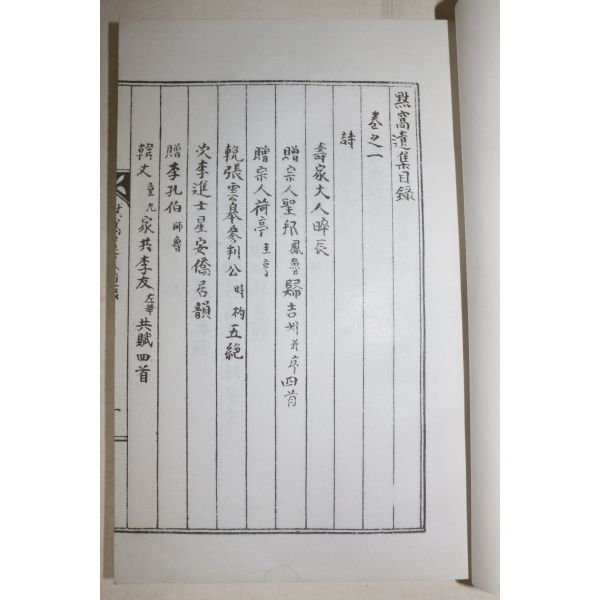 默窩遺集目錄
卷之一
詩
壽家大人晬辰
贈宗人聖招鳳魯歸吉州并序四首
贈宗人荷亭圭亨
輓張雲皋參判公時杓五絶
次李進士星安僑居韻
贈李孔伯師魯
韓文重九家共李友左華共賦四首